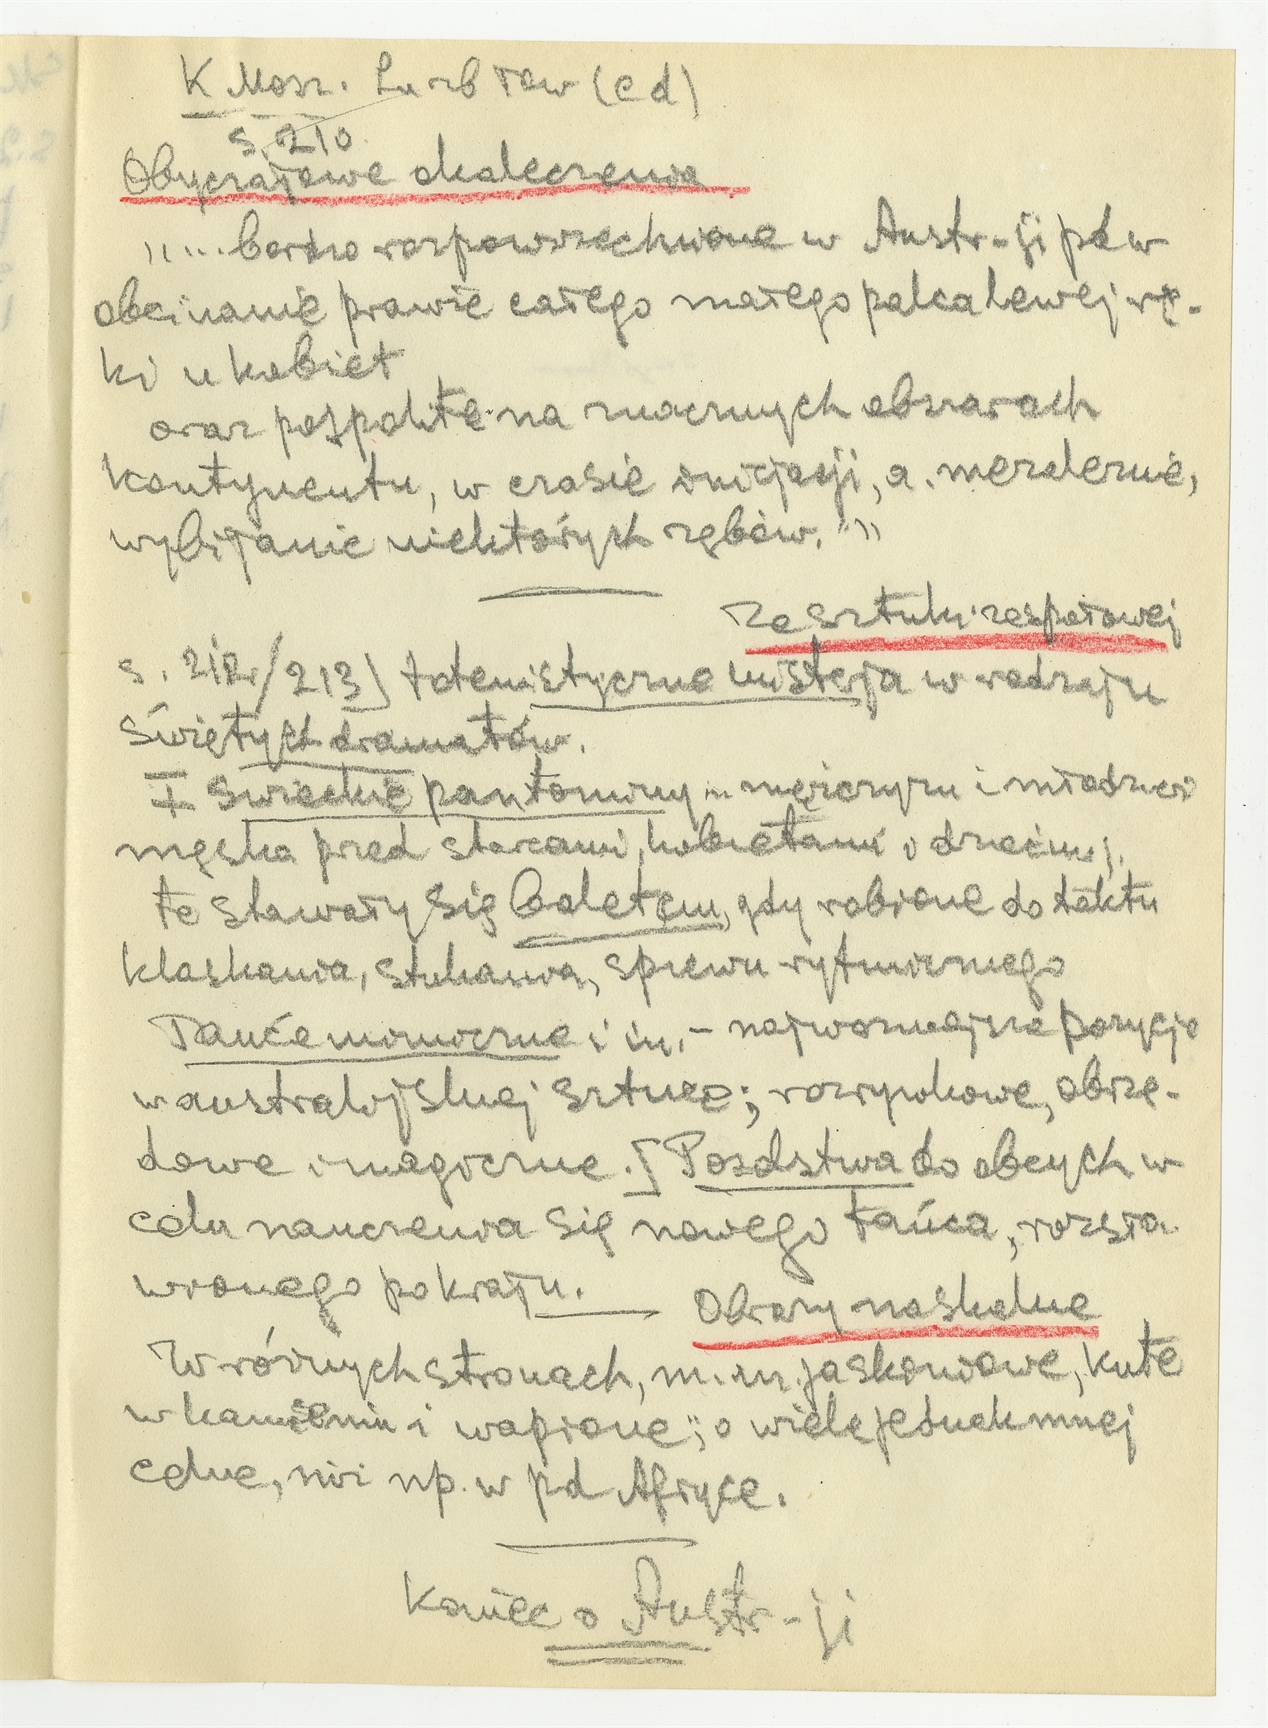 K Mosz. Lub Tew (c d)
s. 210
Obyczajowe okaleczenia
„... bardzo rozpowszechnione w Austr-ji pd w
obcinanie prawie całego małego palca lewej rę-
ki u kobiet
oraz pospolite na znacznych obszarach
kontynentu, w czasie inicjacji, a. niezależnie,
wybijanie niektórych zębów."
Ze sztuki zespołowej
s. 212/213) totemistyczne misterja w rodzaju
świętych dramatów.
I świeckie pantominy ... mężczyzn i młodzież
męska przed starcami, kobietami i dziećmi;
te stawały się baletem, gdy robione do taktu
klaskania, stukania, śpiewu rytmicznego
Tańce mimiczne i in. - najważniejsze pozycje
w australijskiej sztuce; rozrywkowe, obrzę-
dowe i magiczne. Poselstwa do obcych w
celu nauczenia się nowego tańca, rozsła
wionego po kraju.
Obrazy naskalne
W różnych stronach, m. in. jaskiniowe, kute
w kamieniu i wapione; o wiele jednak mniej
celne, niż np. w pd Afryce.
Koniec o Austr-ji